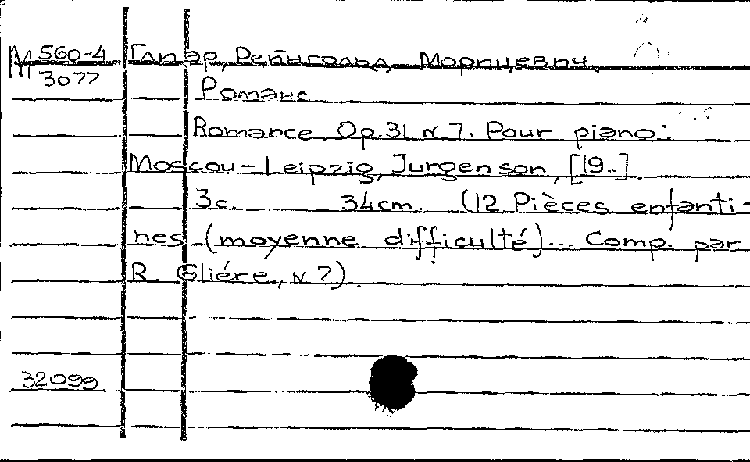 М 560-4 Глиэр, Рейнгольд Морицевич
3077
Романс
Romance. Op. 31 N 7. Pour piano.
Moscou-Leipzig, Jurgenson, [19..]
3с. 34cm. (12 Pièces enfanti-
nes (moyenne difficulté)... Comp. par
R. Glière, N 7)
32099